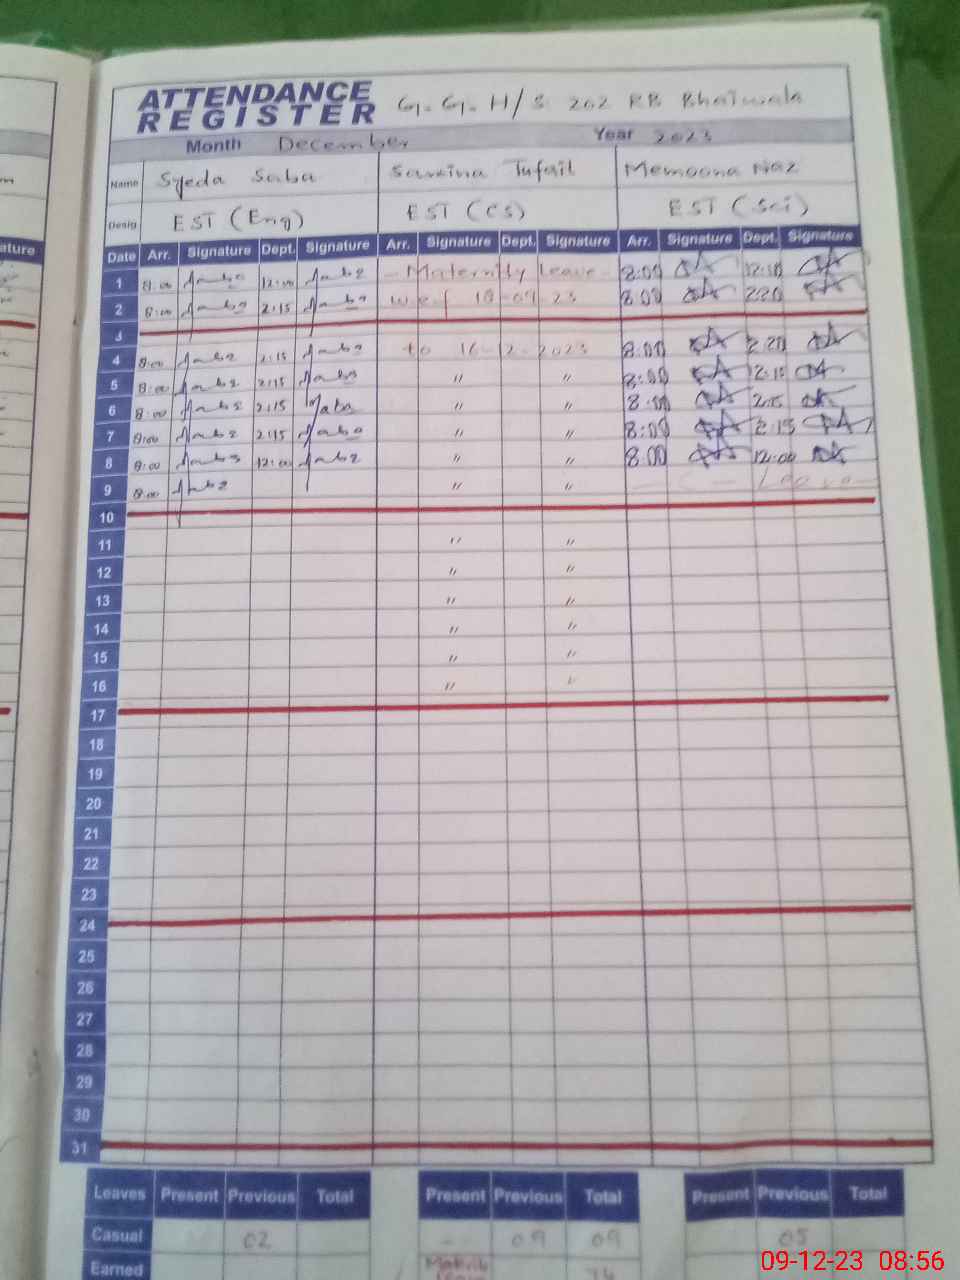 ATTENDANCE REGISTER G.G.H/S 202 RB Bhaiwala
Month December Year 2023
Name Syeda Saba Samina Tufail Memoona Naz
Desig EST (Eng) EST (CS) EST (Sci)
Date Arr. Signature Dept. Signature Arr. Signature Dept. Signature Arr. Signature Dept. Signature
1 8:00 Saba 12:00 Saba - Maternity leave - 8:00 12:10
2 8:00 Saba 2:15 Saba w.e.f 18-09-23 8:00 2:20
3
4 8:00 Saba 2:15 Saba to 16-12-2023 8:00 2:20
5 8:00 Saba 2:15 Saba " " 8:00 2:15
6 8:00 Saba 2:15 Saba " " 8:00 2:15
7 8:00 Saba 2:15 Saba " " 8:00 2:15
8 8:00 Saba 12:00 Saba " " 8:00 12:00
9 8:00 Saba " " - C - Leave -
10
11 " "
12 " "
13 " "
14 " "
15 " "
16 " "
17
18
19
20
21
22
23
24
25
26
27
28
29
30
31
Leaves Present Previous Total Present Previous Total Present Previous Total
Casual 02 - 09 09 05
Earned
09-12-23 08:56